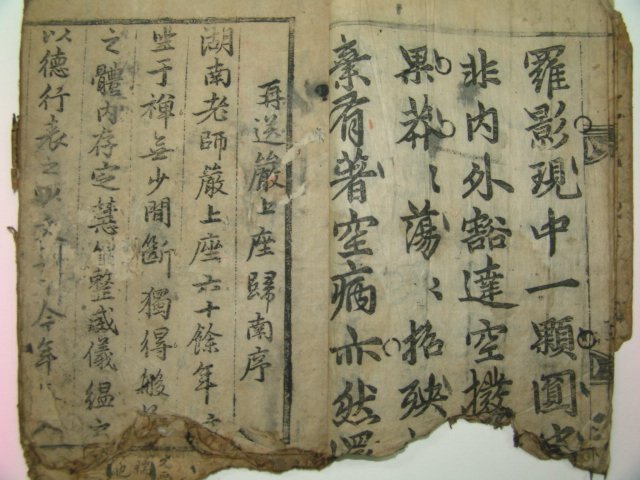 羅影現中一顆圓
非内外豁達空撥
果莽〻蕩〻招殃
棄有著空病亦然
再送嚴上座歸南序
湖南老師嚴上座六十餘年
于禪無少間斷獨得般
之體内存定慧 整威儀縕
以德行表之以文 今年